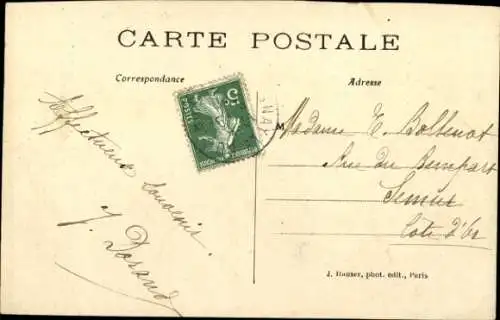 CARTE POSTALE
Correspondance
Adresse
5c
POSTES
Affectueux
souvenir.
J. Durand
M
Madame E. Boltenot
Rue du Rempart
Semur
Côte d'Or
J. Hauser, phot. edit., Paris